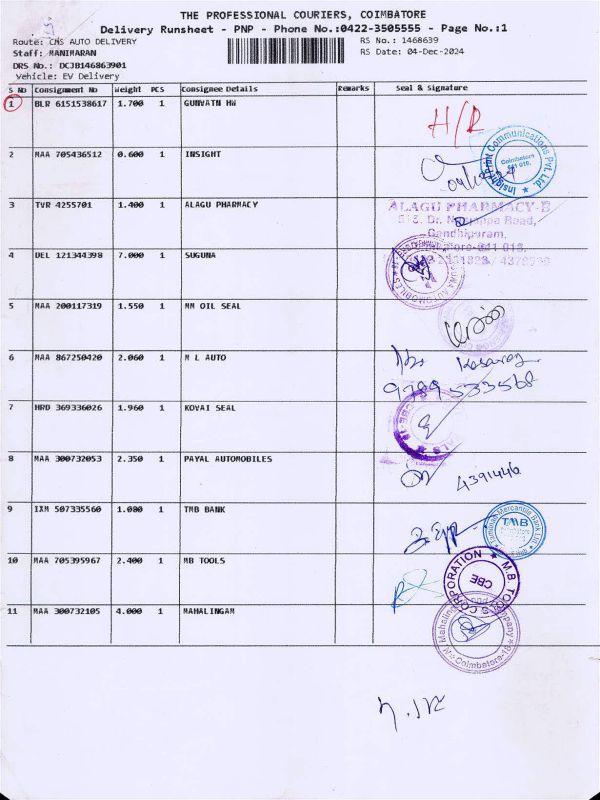 THE PROFESSIONAL COURIERS, COIMBATORE
Delivery Runsheet - PNP - Phone No.:0422-3505555 - Page No.:1
Route: CMS AUTO DELIVERY
RS No.: 1468639
Staff: MANIMARAN
RS Date: 04-Dec-2024
DRS No.: DCJB146863901
Vehicle: EV Delivery
S No Consignment No Weight PCS Consignee Details Remarks Seal & Signature
1 BLR 6151538617 1.700 1 GUNVATH HW
H/R
2 MAA 705436512 0.600 1 INSIGHT
Insight Print Communications Pvt. Ltd.
Coimbatore
641 018.
3 TVR 4255701 1.400 1 ALAGU PHARMACY
ALAGU PHARMACY-B
Road,
Gandhipuram,
4 DEL 121344398 7.000 1 SUGUNA
AUTOMOBILES
5 MAA 200117319 1.550 1 MM OIL SEAL
6 MAA 867250420 2.060 1 M L AUTO
9789533568
7 HRD 369336026 1.960 1 KOVAI SEAL
8 MAA 300732053 2.350 1 PAYAL AUTOMOBILES
4391446
9 IXM 507335560 1.080 1 TMB BANK
Tamilnad Mercantile Bank Ltd.
TMB
10 MAA 705395967 2.400 1 MB TOOLS
M.B. TOOLS CORPORATION
CBE
11 MAA 300732105 4.000 1 MAHALINGAM
Mahalingam and Company
Coimbatore-18